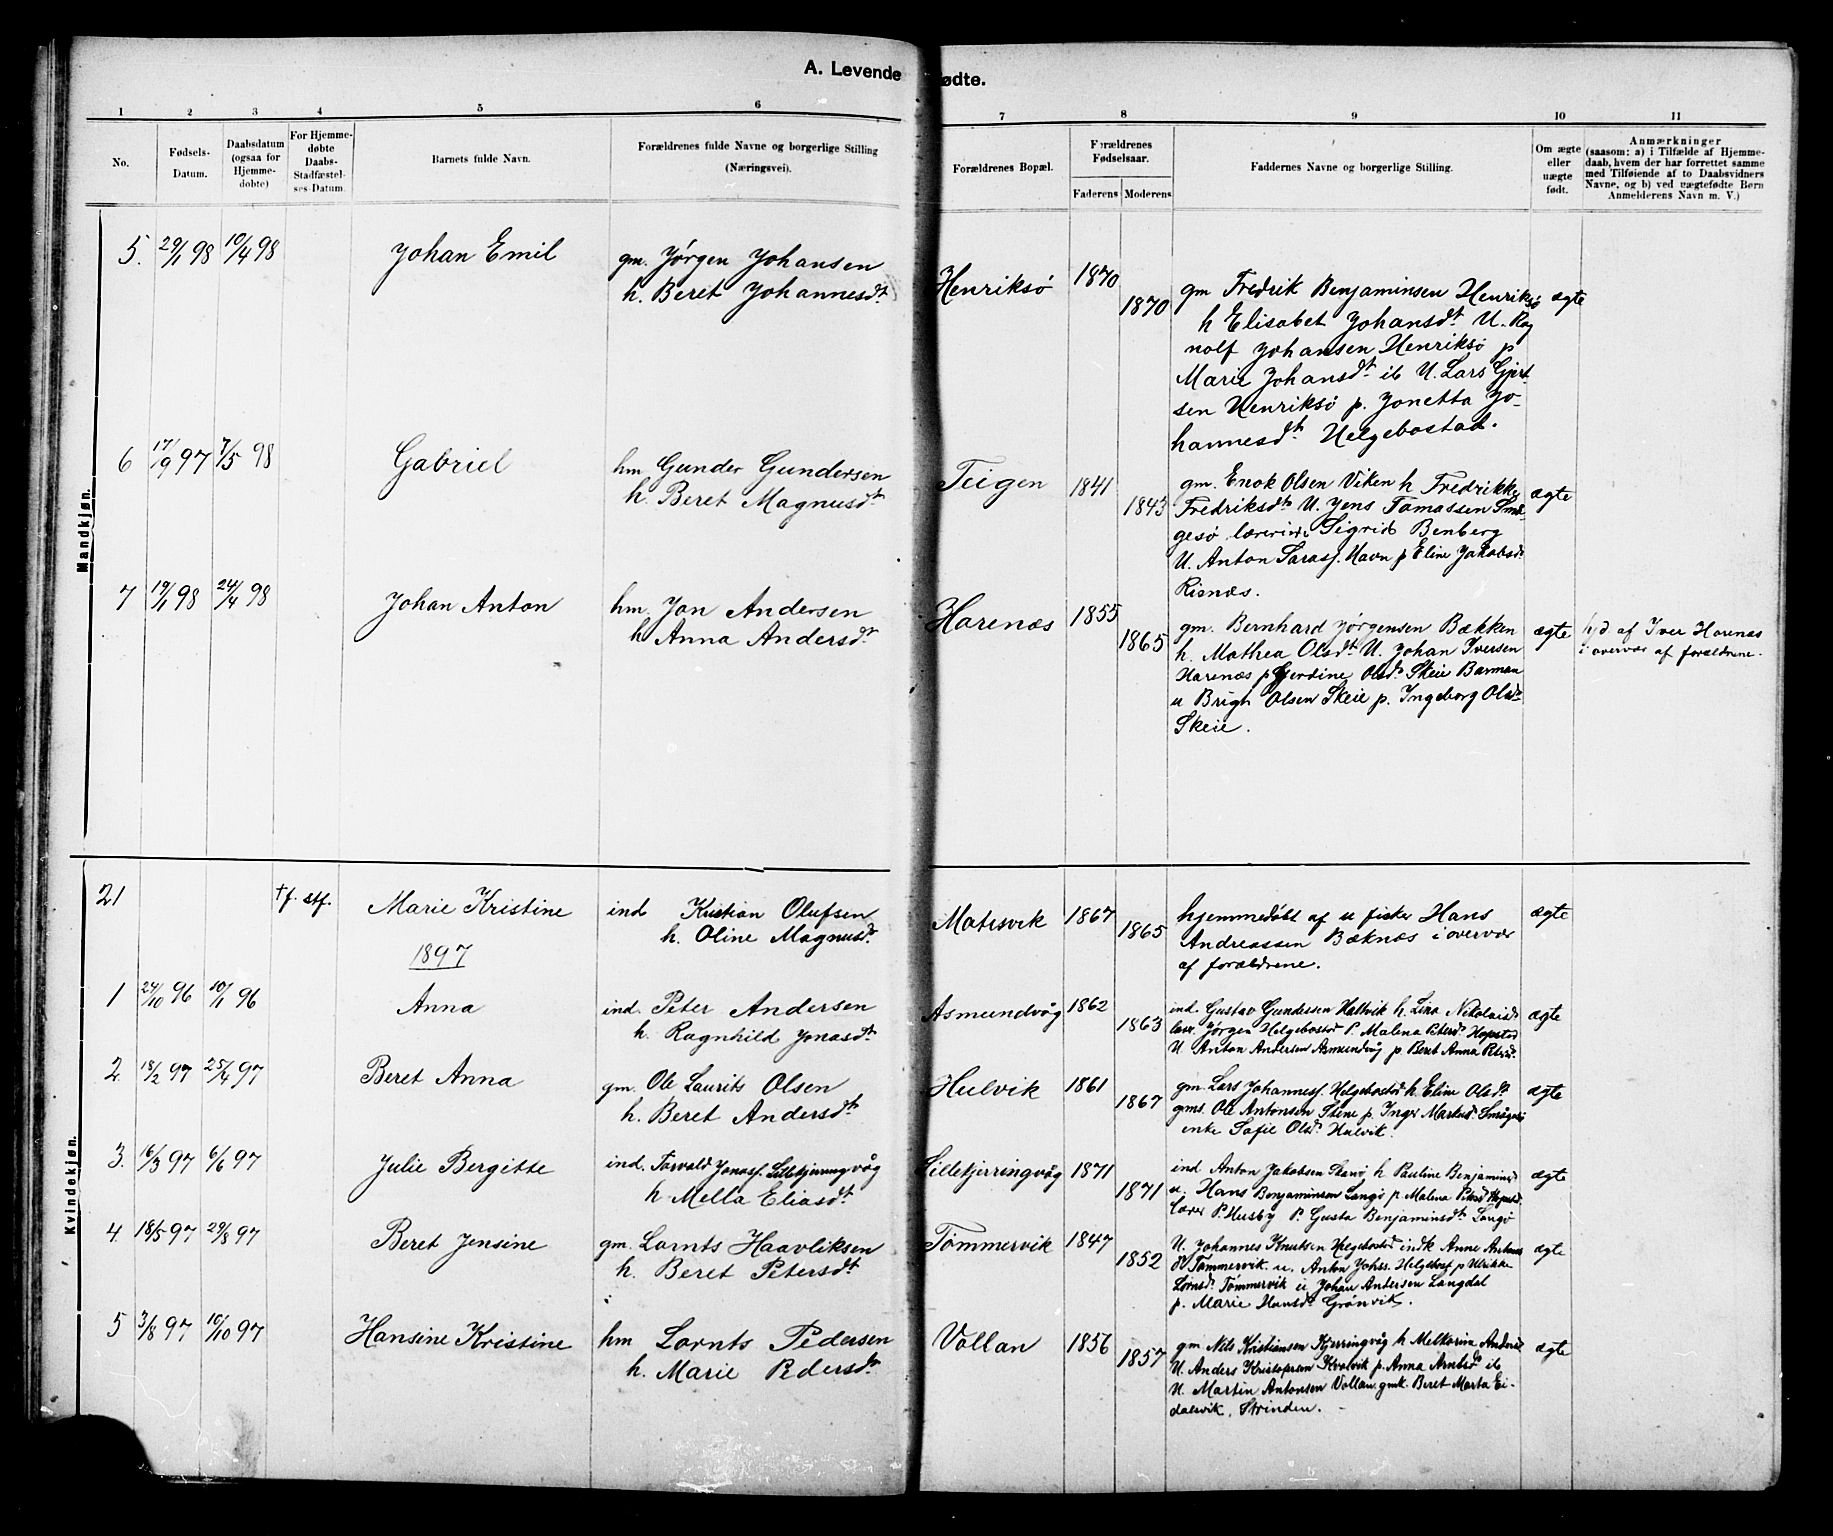 A. Levende fødte.
1 2 3 4 5 6 7 8 9 10 11
No.
Fødsels-
Datum.
Daabsdatum
(ogsaa for
Hjemme-
døbte)
For Hjemme-
døbte
Daabs-
Stadfæstel-
ses-Datum.
Barnets fulde Navn.
Forældrenes fulde Navne og borgerlige Stilling
(Næringsvei).
Forældrenes Bopæl.
Forældrenes
Fødselsaar.
Faderens Moderens
Faddernes Navne og borgerlige Stilling.
Om ægte
eller
uægte
født.
Anmærkninger
(saasom: a) i Tilfælde af Hjemme-
daab, hvem der har forrettet samme
med Tilføiende af to Daabsvidners
Navne, og b) ved uægtefødte Børn
Anmelderens Navn m. V.)
Mandkjøn.
5. 29/1 98 10/4 98 Johan Emil
gm. Jørgen Johansen
h. Beret Johannesdt
Henriksø 1870 1870
gm Fredrik Benjaminsen Henriksø
h Elisabet Johansdt U. Rag
nolf Johansen Henriksø p
Marie Johansdt ib U. Lars Gjert
sen Henriksø p. Jonetta Jo-
hannesdt Helgebostad.
ægte
6 17/9 97 7/5 98 Gabriel
hm Gunder Gundersen
h. Beret Magnusdt
Teigen 1841 1843
gm. Enok Olsen Viken h Fredrikke
Fredriksdt U. Jens Tomassen Smaa-
gesø lærerinde Sigrid Benberg
U. Anton Larasf. Havn p Eline Jakobsd.
Risnæs.
ægte
7 19/1 98 24/4 98 Johan Anton
hm. Jon Andersen
h Anna Andersdt
Harenæs 1855 1865
gm. Bernhard Jørgensen Bækken
h. Mathea Olsdt U. Johan Iversen
Harenæs p Gjerdine Olsd. Skeie Barman
u Brigt Olsen Skeie p. Ingeborg Olsd.
Skeie.
ægte
hjd. af Iver Harenæs
i overvær af forældrene.
Kvindekjøn.
21 †f. stf. Marie Kristine
ind Kristian Olufsen
h. Oline Magnusd.
Matisvik 1867 1865
hjemmedøbt af u fisker Hans
Andreassen Bæknæs i overvær
af forældrene.
ægte
1897
1 24/10 96 10/1 96 Anna
ind. Peter Andersen
h. Ragnhild Jonasdt
Asmundvåg 1862 1863
ind. Gustav Gundersen Hallvik h. Lina Nikolaid.
lær. Jørgen Helgebostad P. Malena Petersd. Hopstad
U. Anton Andersen Asmundvåg p Beret Anna Petersd.
ægte
2. 18/2 97 25/4 97 Beret Anna
gm. Ole Laurits Olsen
h. Beret Andersdt
Hulvik 1861 1867
gm. Lars Johannesf. Helgebostad h. Eline Olsdt
gms. Ole Antonsen Stene p. Inger Markusd. Smågesø
enke Sofie Olsd. Hulvik.
ægte
3. 16/3 97 6/6 97 Julie Bergitte
ind. Torvald Jonasf. Lillekjerringvåg
h Mella Eliasdt
Lillekjerringvåg 1871 1871
ind Anton Jakobsen Skarø h Pauline Benjaminsd
u. Hans Benjaminsen Langø p. Malena Petersd Hopstad.
lærer P. Husby P. Gusta Benjaminsdt Langø
ægte
4. 18/5 97 29/8 97 Beret Jensine
gm. Lornts Haavliksen
h. Beret Petersdt
Tømmervik 1847 1852
U. Johannes Knutsen Helgebostad indk Anne
Tømmervik u. Anton Johs. Helgebost p Ulrikke
Lornsd. Tømmervik u Johan Andersen Langdal
p. Marie Hansdt Grønvik.
ægte
5 3/8 97 10/10 97 Hansine Kristine
hm Lornts Pedersen
h. Marie Pedersdt
Vollan 1856 1857
gm Nels Kristiansen Kjerringvåg h Melkorina Andersd
U. Anders Kristofersen Kvalvik p. Anna Arntsdt ib
U. Martin Antonsen Vollan gmk. Beret Marta Ei-
dalsvik, Strinden.
ægte